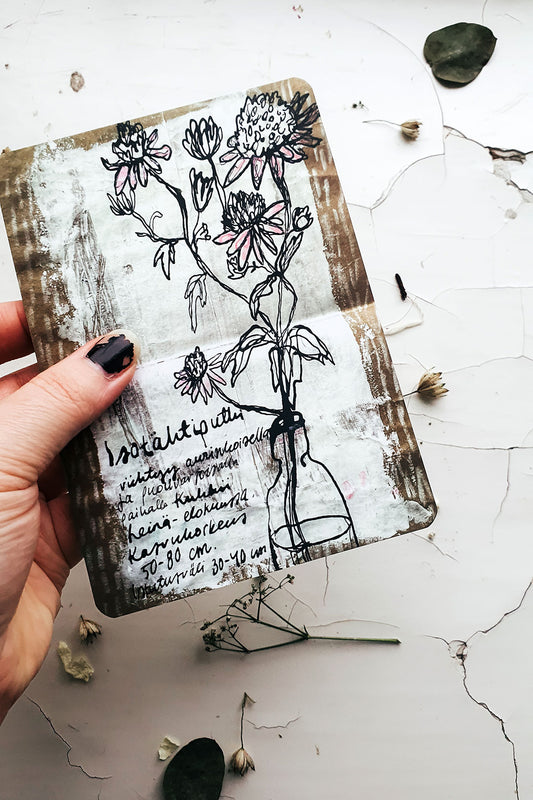 Isotähtiputki
viihtyy aurinkoisella
ja puolivarjoisalla
paikalla. Kukkii
heinä-elokuussa.
Kasvukorkeus
50-80 cm.
Istutusväli 30-40 cm